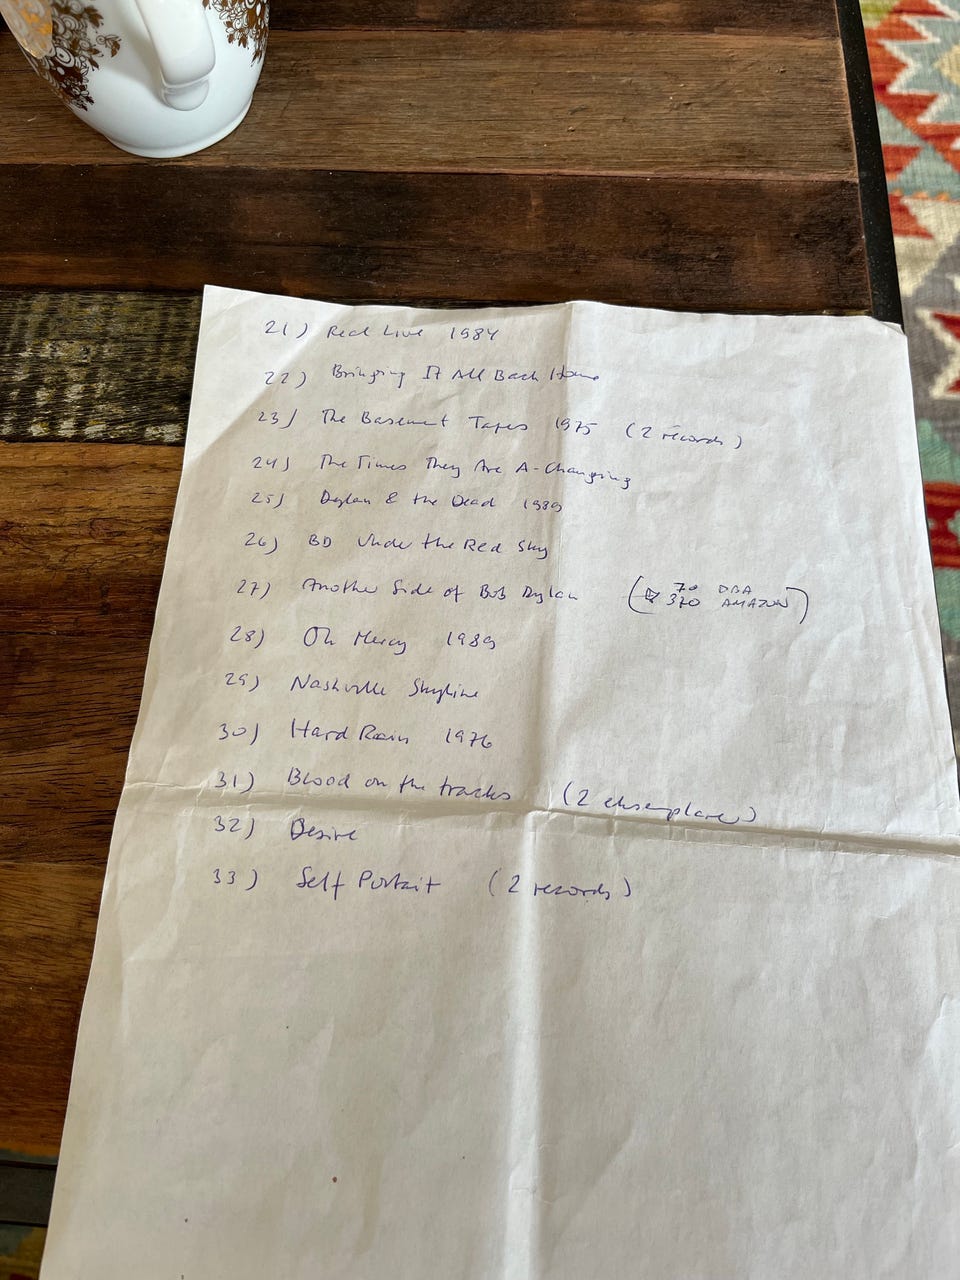 21) Real Live 1984
22) Bringing It All Back Home
23) The Basement Tapes 1975 (2 records)
24) The Times They Are A-Changing
25) Dylan & the Dead 1989
26) BD Under the Red Sky
27) Another Side of Bob Dylan (70 DBA
370 AMAZON)
28) Oh Mercy 1989
29) Nashville Skyline
30) Hard Rain 1976
31) Blood on the tracks (2 eksemplarer)
32) Desire
33) Self Portrait (2 records)